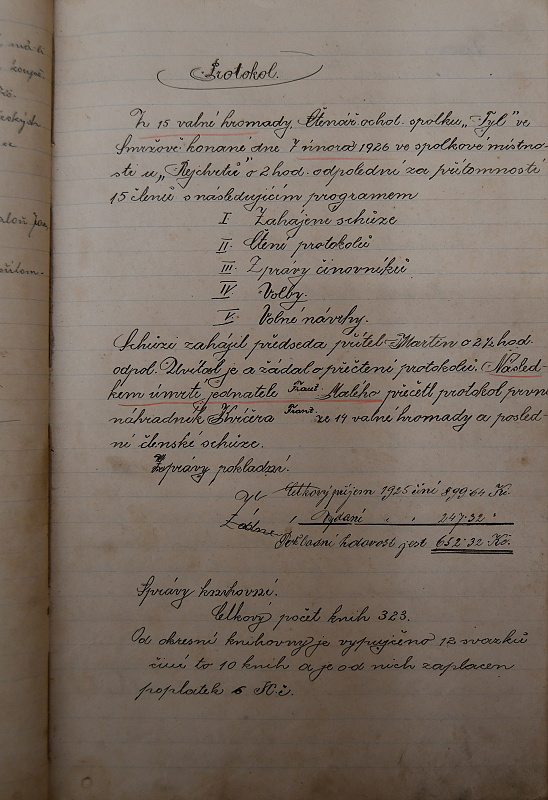 Protokol.
Z 15 valné hromady, Čtenář. ochot. spolku „Tyl" ve
Smržově konané dne 7 února 1926 ve spolkové místno-
sti u „Rejchrtů" o 2 hod. odpolední za přítomnosti
15 členů s následujícím programem
I. Zahájení schůze
II. Čtení protokolů
III. Zprávy činovníků
IV. Volby.
V. Volné návrhy.
Schůzi zahájil předseda přítel Martin o 2½ hod.
odpol. Uvítal je a žádal o přečtení protokolů. Násled-
kem úmrtí jednatele Frant. Malého přečetl protokol první
náhradník Kvíčera Frant. ze 14 valné hromady a posled-
ní členské schůze.
Zprávy pokladní.
Celkový příjem 1925 činí 899·64 Kč.
Vydání „ „ 247·32 „
Pokladní hotovost jest 652·32 Kč.
Správy knihovní.
Celkový počet knih 323.
Od okresní knihovny je vypujčeno 12 svazků
čině to 10 knih a je od nich zaplacen
poplatek 6 Kč.